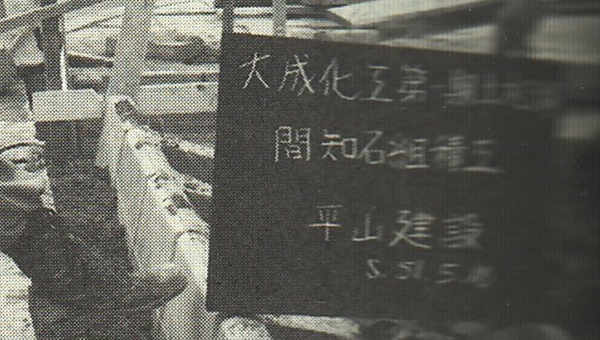 大成化工第一
間知石組積工
平山建設
S.51.5.